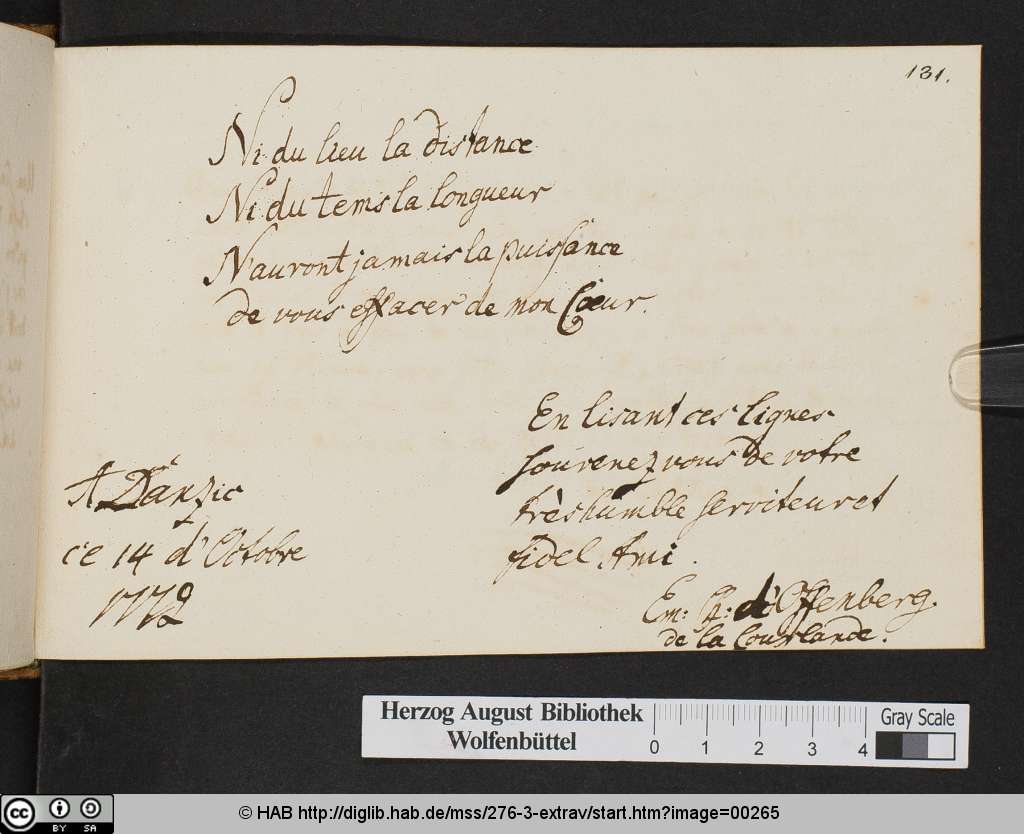 131.
Ni du lieu la distance
Ni du tems la longueur
N'auront jamais la puissance
de vous effacer de mon Cœur.
En lisant ces lignes
souvenez vous de votre
très humble serviteur et
fidel Ami.
A Danzic
ce 14 d'Octobre
1772
Em: d'Offenberg.
de la Courlande.
Herzog August Bibliothek
Wolfenbüttel
0 1 2 3 4
Gray Scale
cc BY SA
© HAB http://diglib.hab.de/mss/276-3-extrav/start.htm?image=00265